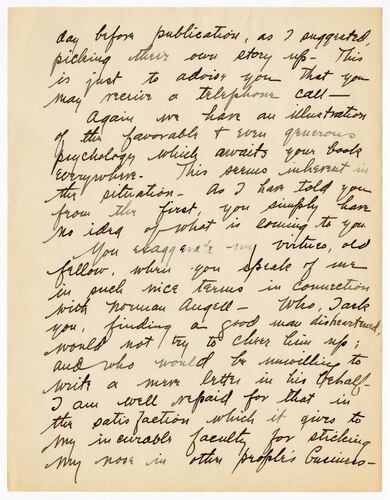 day before publication, as I suggested,
picking their own story up - This
is just to advise you that you
may receive a telephone call —
Again we have an illustration
of the favorable & even generous
psychology which awaits your book
everywhere - This seems inherent in
the situation - As I have told you
from the first, you simply have
no idea of what is coming to you
You exaggerate my virtues, old
fellow, when you speak of me
in such nice terms in connection
with Norman Angell - Who, I ask
you, finding a good man disheartened,
would not try to cheer him up;
and who would be unwilling to
write a mere letter in his behalf -
I am well repaid for that in
the satisfaction which it gives to
my incurable faculty for sticking
my nose in other people's business -